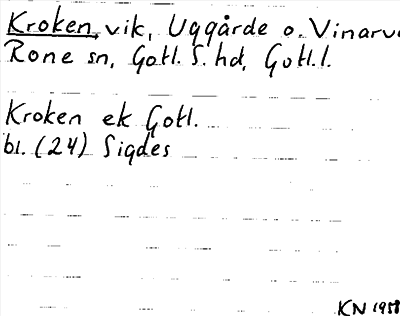 Kroken, vik, Uggårde o. Vinarve
Rone sn, Gotl. S. hd, Gotl. l.
Kroken ek Gotl.
bl. (24) Sigdes
KN 1958